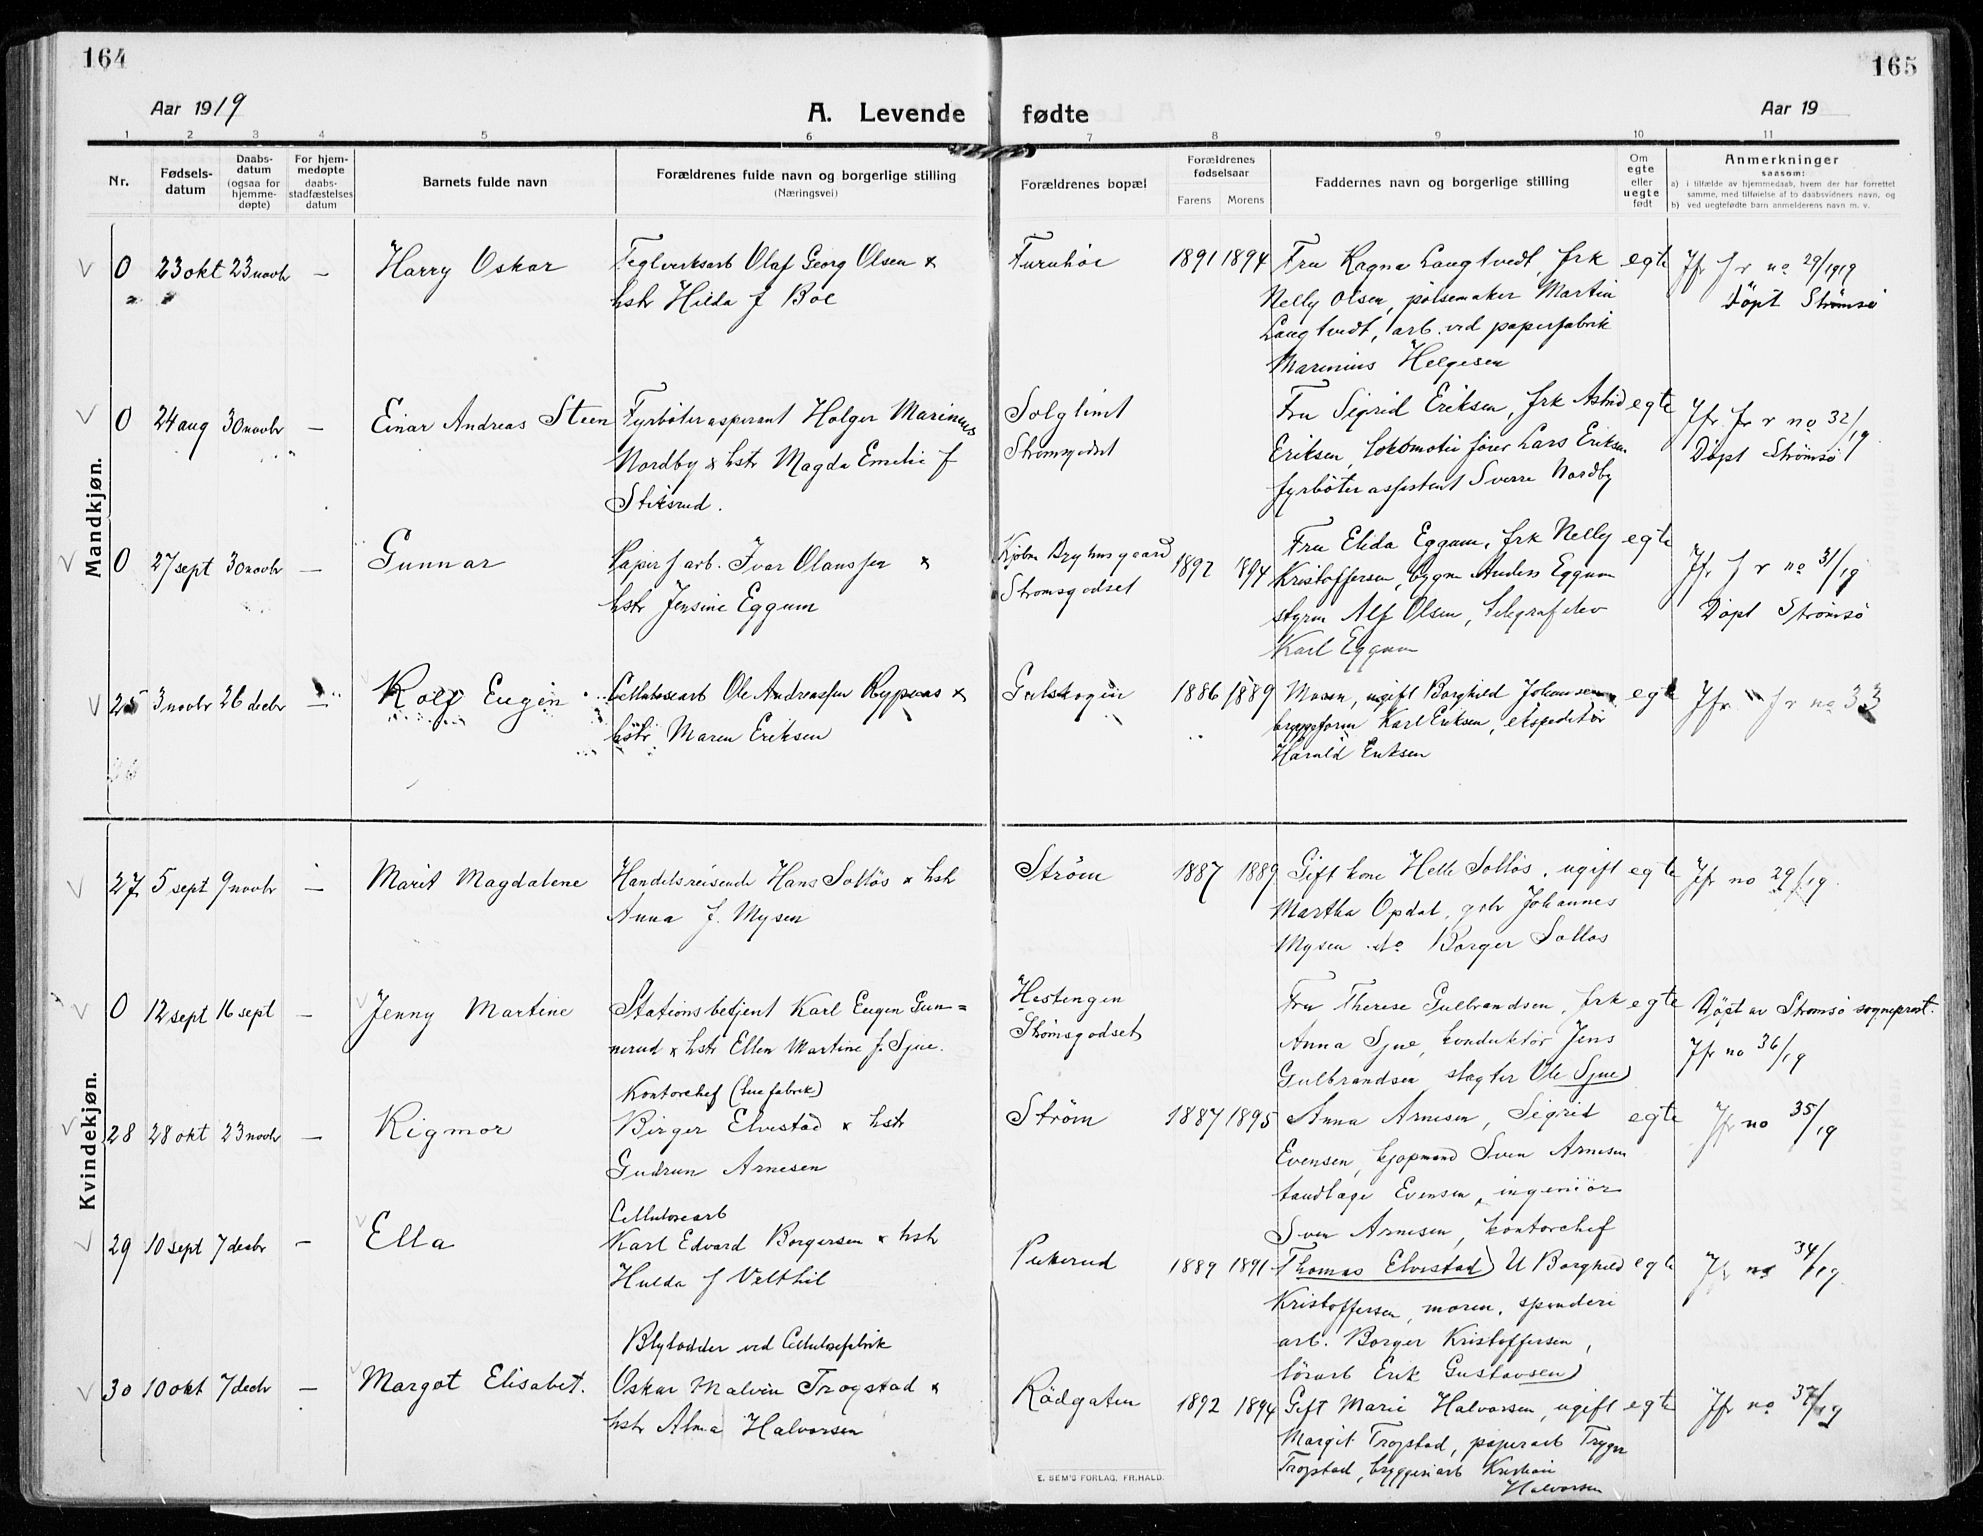 164
165
Aar 1919
A. Levende fødte
Aar 19
1 2 3 4 5 6 7 8 9 10 11
Nr.
Fødsels-
datum
Daabs-
datum
(ogsaa for
hjemme-
døpte)
For hjem-
medøpte
daabs-
stadfæstelses
datum
Barnets fulde navn
Forældrenes fulde navn og borgerlige stilling
(Næringsvei)
Forældrenes bopæl
Forældrenes
fødselsaar
Farens Morens
Faddernes navn og borgerlige stilling
Om
egte
eller
uegte
født
Anmerkninger
saasom:
a) i tilfælde av hjemmedaab, hvem der har forrettet
samme, med tilføielse af to daabsvidners navn, og
b) ved uegtefødte barn anmelderens navn m. v.
Mandkjøn.
0 23 okt 23 novbr — Harry Oskar
Teglverksarb Olaf Georg Olsen &
hstr Hilda f Boe
Furuhöi
1891 1894
Fru Ragna Langtvedt, frk
Nelly Olsen, pölsemaker Martin
Langtvedt, arb. ved papirfabrik
Marinius Helgesen
egte
Jfr f r no 29/1919
Döpt Strømsø
0 24 aug 30 novbr — Einar Andreas Steen
Fyrböteraspirant Holger Marinius
Nordby & hstr Magda Emelie f
Stiksrud.
Solglimt
Strømsgodset
Fru Sigrid Eriksen, frk Astrid
Eriksen, lokomotivfører Lars Eriksen
fyrböterassistent Sverre Nordby
egte
Jfr fr r no 32/19
Döpt Strømsø
0 27 sept 30 novbr — Gunnar
Papirf arb. Ivar Olaussen &
hstr Jensine Eggum
Kjøbm Bryhnsgaard
Strømsgodset
1892 1894
Fru Elida Eggum, frk Nelly
Kristoffersen, bygm Anders Eggum
styrm Alf Olsen, telegrafelev
Karl Eggum
egte
Jfr f r no 31/19
Döpt Strømsø
25 3 novbr 26 decbr — Rolf Eugen
Cellulosearb Ole Andreassen Rypaas &
hstr Maren Eriksen
Gulskogen
1886 1889
Moren, ugift Borghild Johansen,
bryggeform Karl Eriksen, ekspeditör
Harald Eriksen
egte
Jfr f r no 33
26
Kvindekjøn.
27 5 sept 9 novbr — Marit Magdalene
Handelsreisende Hans Solløs & hstr
Anna f. Mysen
Strøm
1887 1889
Gift kone Helle Solløs, ugift
Martha Opdal, gbr Johannes
Mysen do Borger Solløs
egte
Jfr no 29/19.
0 12 sept 16 sept — Jenny Martine
Stationsbetjent Karl Eugen Gun=
nerud & hstr Ellen Martine f. Sjue.
Hestengen
Strømsgodset
Fru Therese Gulbrandsen, frk
Anna Sjue, konduktör Jens
Gulbrandsen slagter Ole Sjue)
egte
Döpt av Strømsø sogneprest.
Jfr no 36/19
28 28 okt 23 novbr — Rigmor
Kontorchef (lue fabrik)
Birger Elvestad & hstr
Gudrun Arnesen
Strøm
1887 1895
Anna Arnesen, Sigrid
Evensen, kjøpmand Sven Arnesen
tandlæge Evensen, ingeniör
Sven Arnesen, kontorchef
Thomas Elvestad)
egte
Jfr no 35/19
29 10 sept 7 decbr — Ella
Cellulosearb
Karl Edvard Borgersen & hstr
Hulda f Velthil
Pukerud
1889 1891
U Borghild
Kristoffersen, moren, spinderi
arb. Borger Kristoffersen,
lörarb Erik Gustavsen)
egte
Jfr no 34/19
30 10 okt 7 decbr — Margot Elisabet.
Blylodder ved Cellulosefabrik
Oskar Malvin Trogstad &
hstr Alma Halvorsen
Rödgaten
1892 1894
Gift Marie Halvorsen, ugift
Margit Trogstad, papirarb Trygve
Trogstad, bryggeriarb Kristian
Halvorsen
egte
Jfr no 37/19
E. SEM'S FORLAG, FR.HALD.